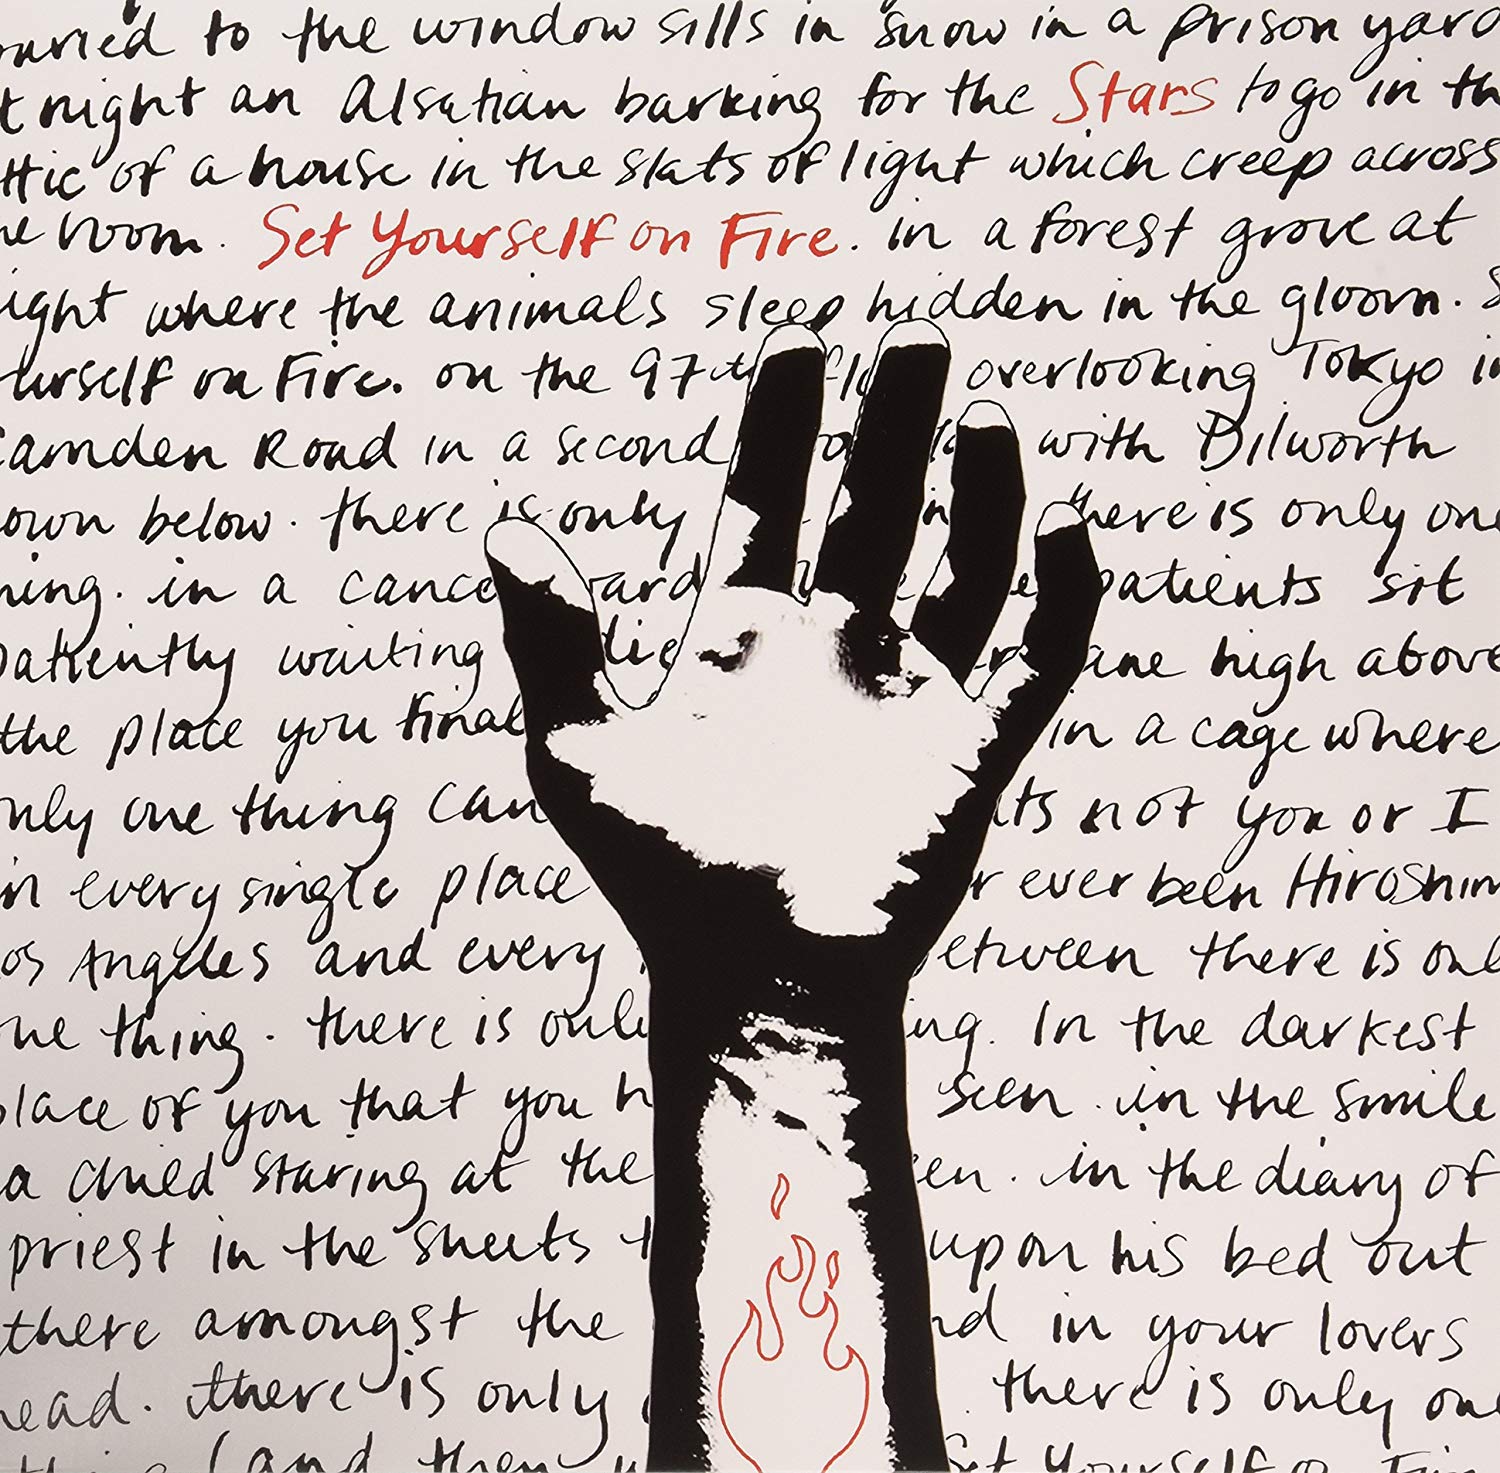 to the window sills in snow in a prison yard
t night an Alsatian barking for the Stars to go in th
ttic of a house in the slats of light which creep across
he room. Set Yourself on Fire. in a forest grove at
ight where the animals sleep hidden in the gloom. S
urself on Fire. on the 97th flo overlooking Tokyo in
Camden Road in a second with Dilworth
own below. there is only n there is only one
hing. in a cance ard e patients sit
patiently waiting die ane high above
the place you final in a cage where
only one thing can its not you or I
in every single place r ever been Hiroshim
os Angeles and every etween there is onl
one thing. there is only ing. In the darkest
place of you that you h seen. in the smile
a child staring at the en. in the diary of
priest in the sheets t upon his bed out
there amongst the nd in your lovers
head. there is only there is only one
thing (and then Set Yourself on Fire